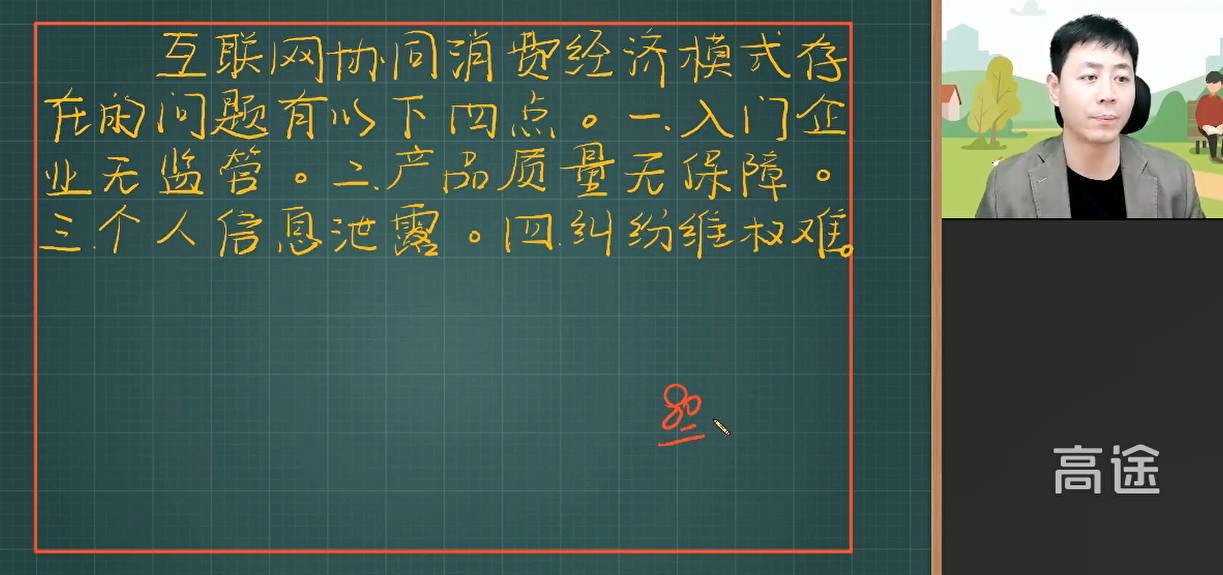 互联网协同消费经济模式存
在的问题有以下四点。一.入门企
业无监管。二.产品质量无保障。
三.个人信息泄露。四.纠纷维权难。
80
高途